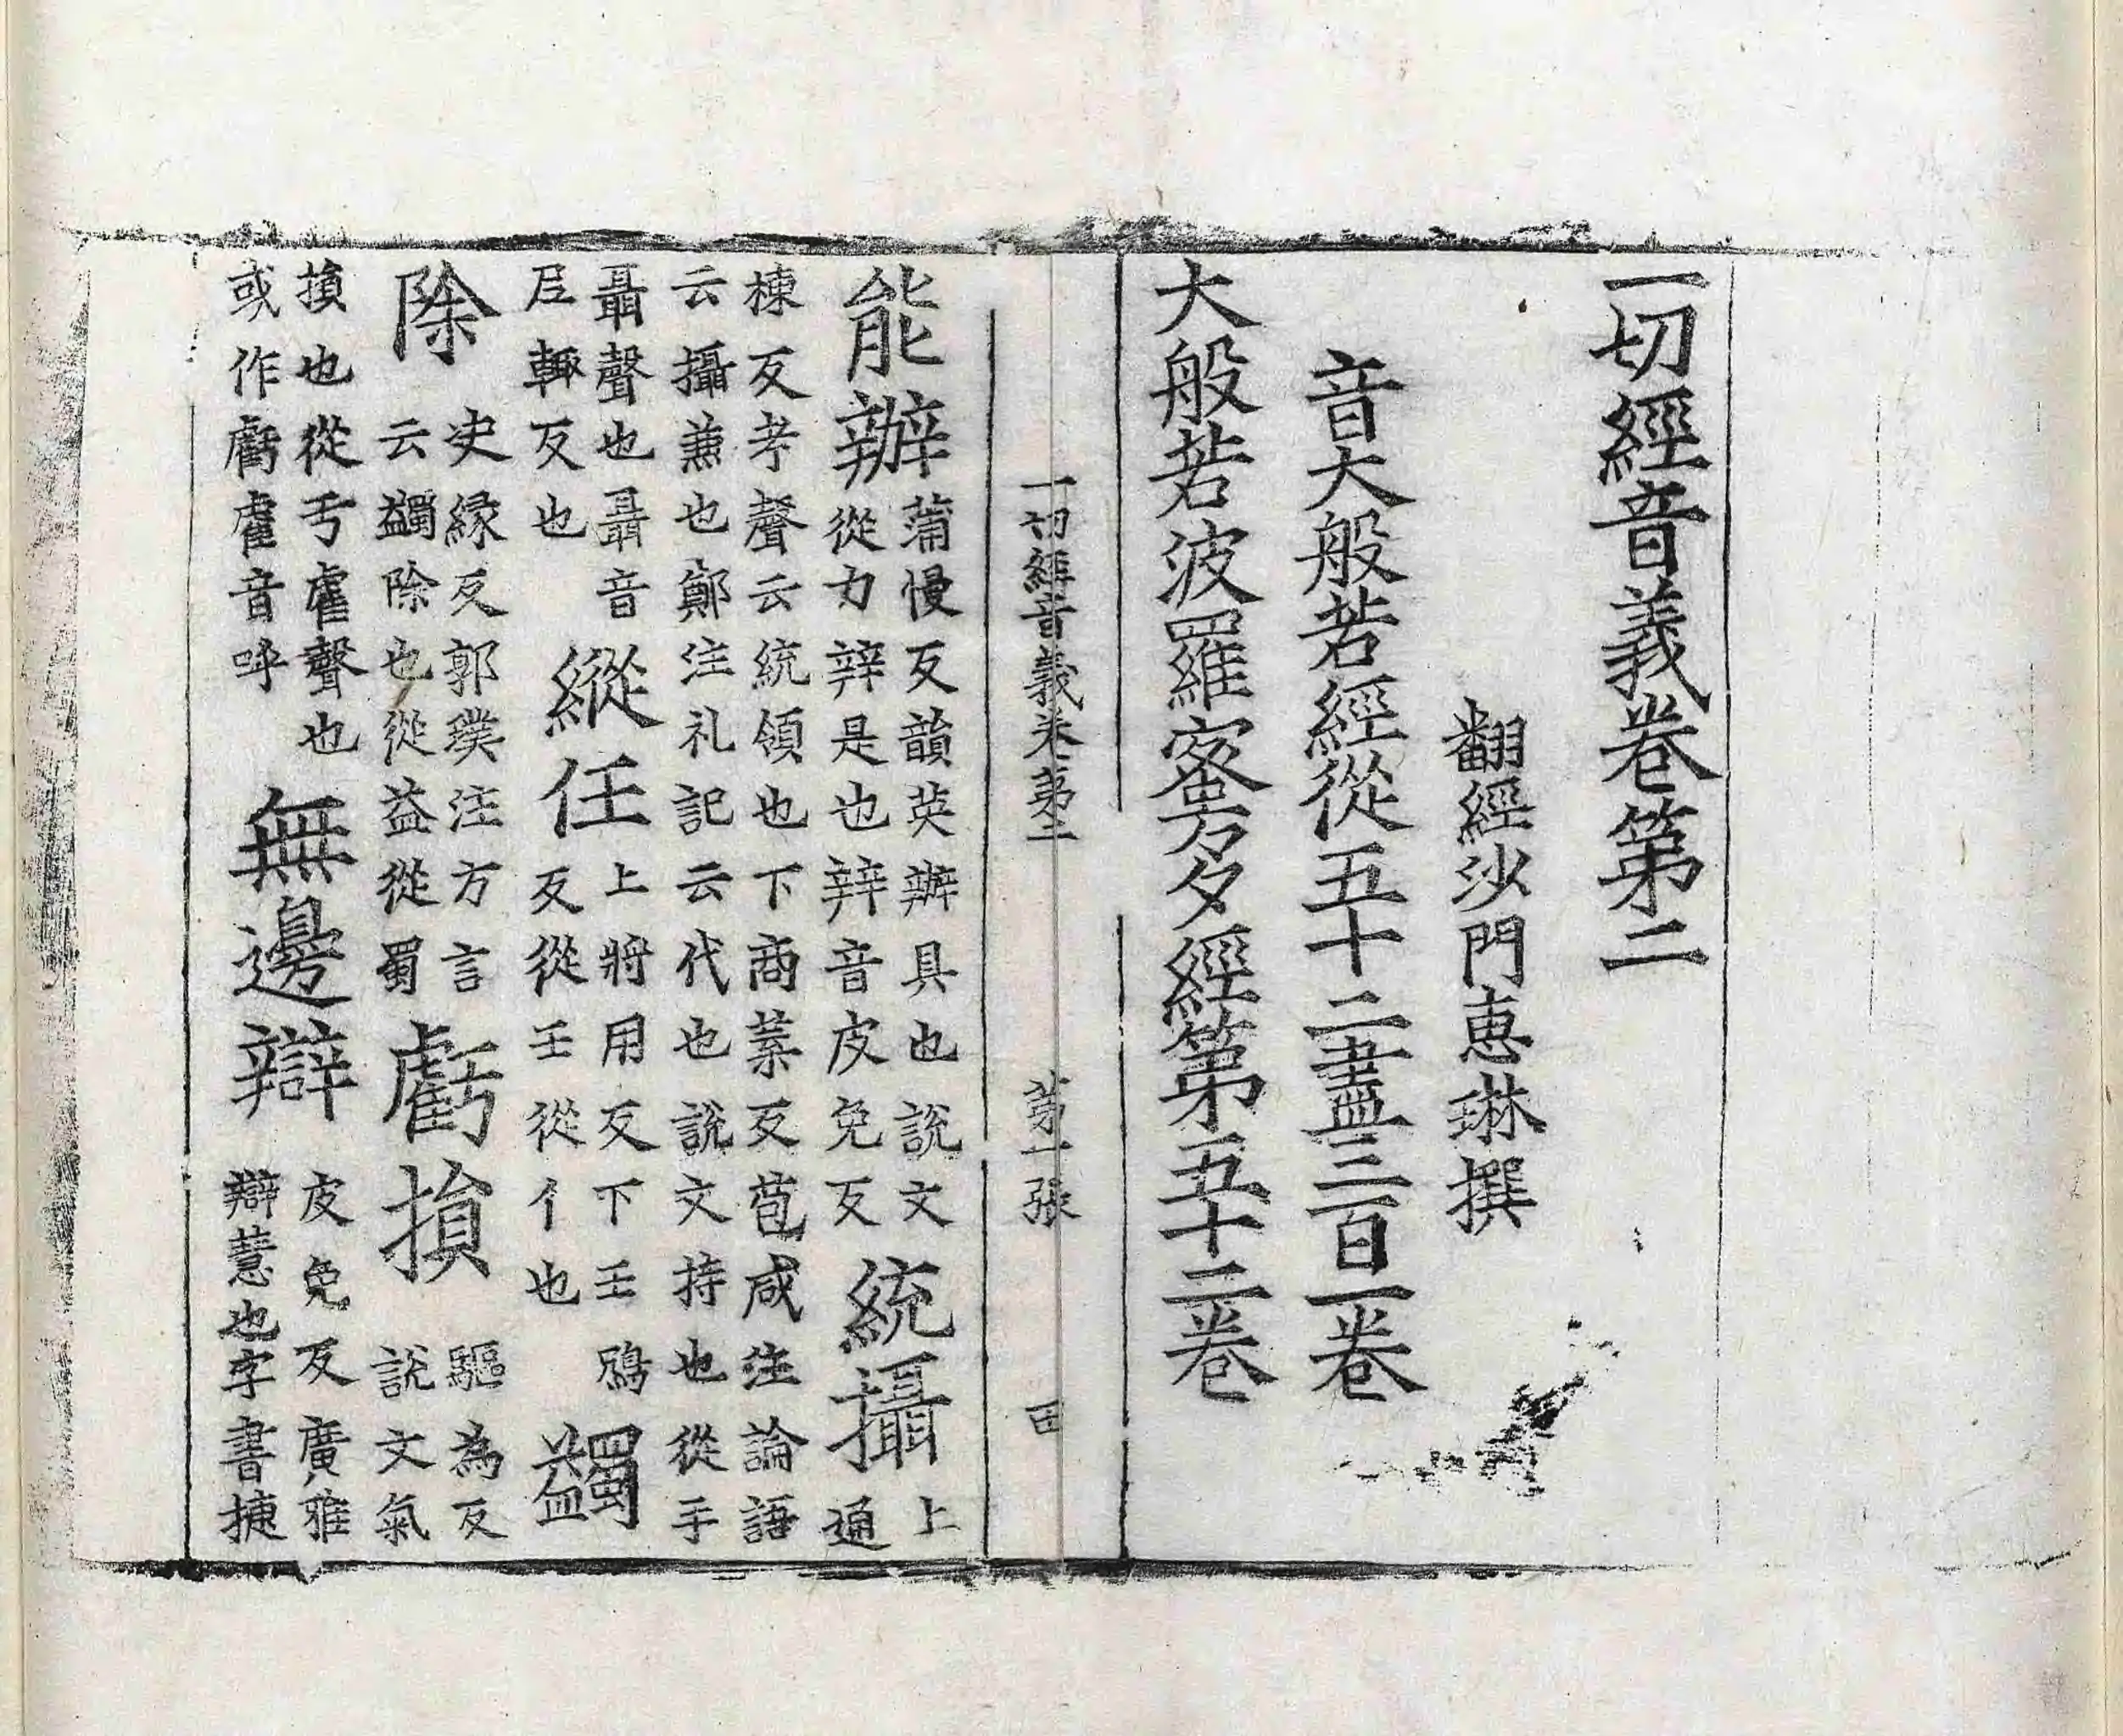 一切經音義卷第二
翻經沙門惠琳撰
音大般若經從五十二盡三百一卷
大般若波羅蜜多經第五十二卷
一切經音義卷第二 第一張 田
能辦 蒲慢反韻英辦具也說文
從力辡是也辡音皮免反 統攝 上
通
棟反考聲云統領也下商葉反苞咸注論語
云攝兼也鄭注礼記云代也說文持也從手
聶聲也聶音
尼輒反也 縱任 上將用反下壬鴆
反從壬從亻也 蠲
除 決緣反郭璞注方言
云蠲除也從益從蜀 虧損 驅為反
說文氣
損也從亐雐聲也
或作虧雐音呼 無邊辯 皮免反廣雅
辯慧也字書捷